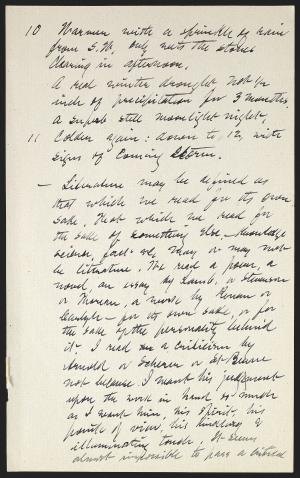 10 Warmer with a sprinkle of rain
from S.W. only wets the stones
Clearing in afternoon.
A real winter drought not ½
inch of precipitation for 3 months.
A superb still moonlight night.
11 Colder again: down to 12, with
signs of coming storm.
— Literature may be defined as
that which we read for its own
sake. That which we read for
the sake of something else – knowledge
science, fact – &c, may or may not
be literature. We read a poem, a
novel, an essay by Lamb, or Stevenson
or Moreau, a work by Renan or
Carlyle – for its own sake, or for
the sake of the personality behind
it. I read a criticism by
Arnold or Scherer or St Beuve
not because I want his judgement
upon the work in hand so much
as I want him, his spirit, his
point of view, his kindling &
illuminating touch. It seems
almost impossible to pass a